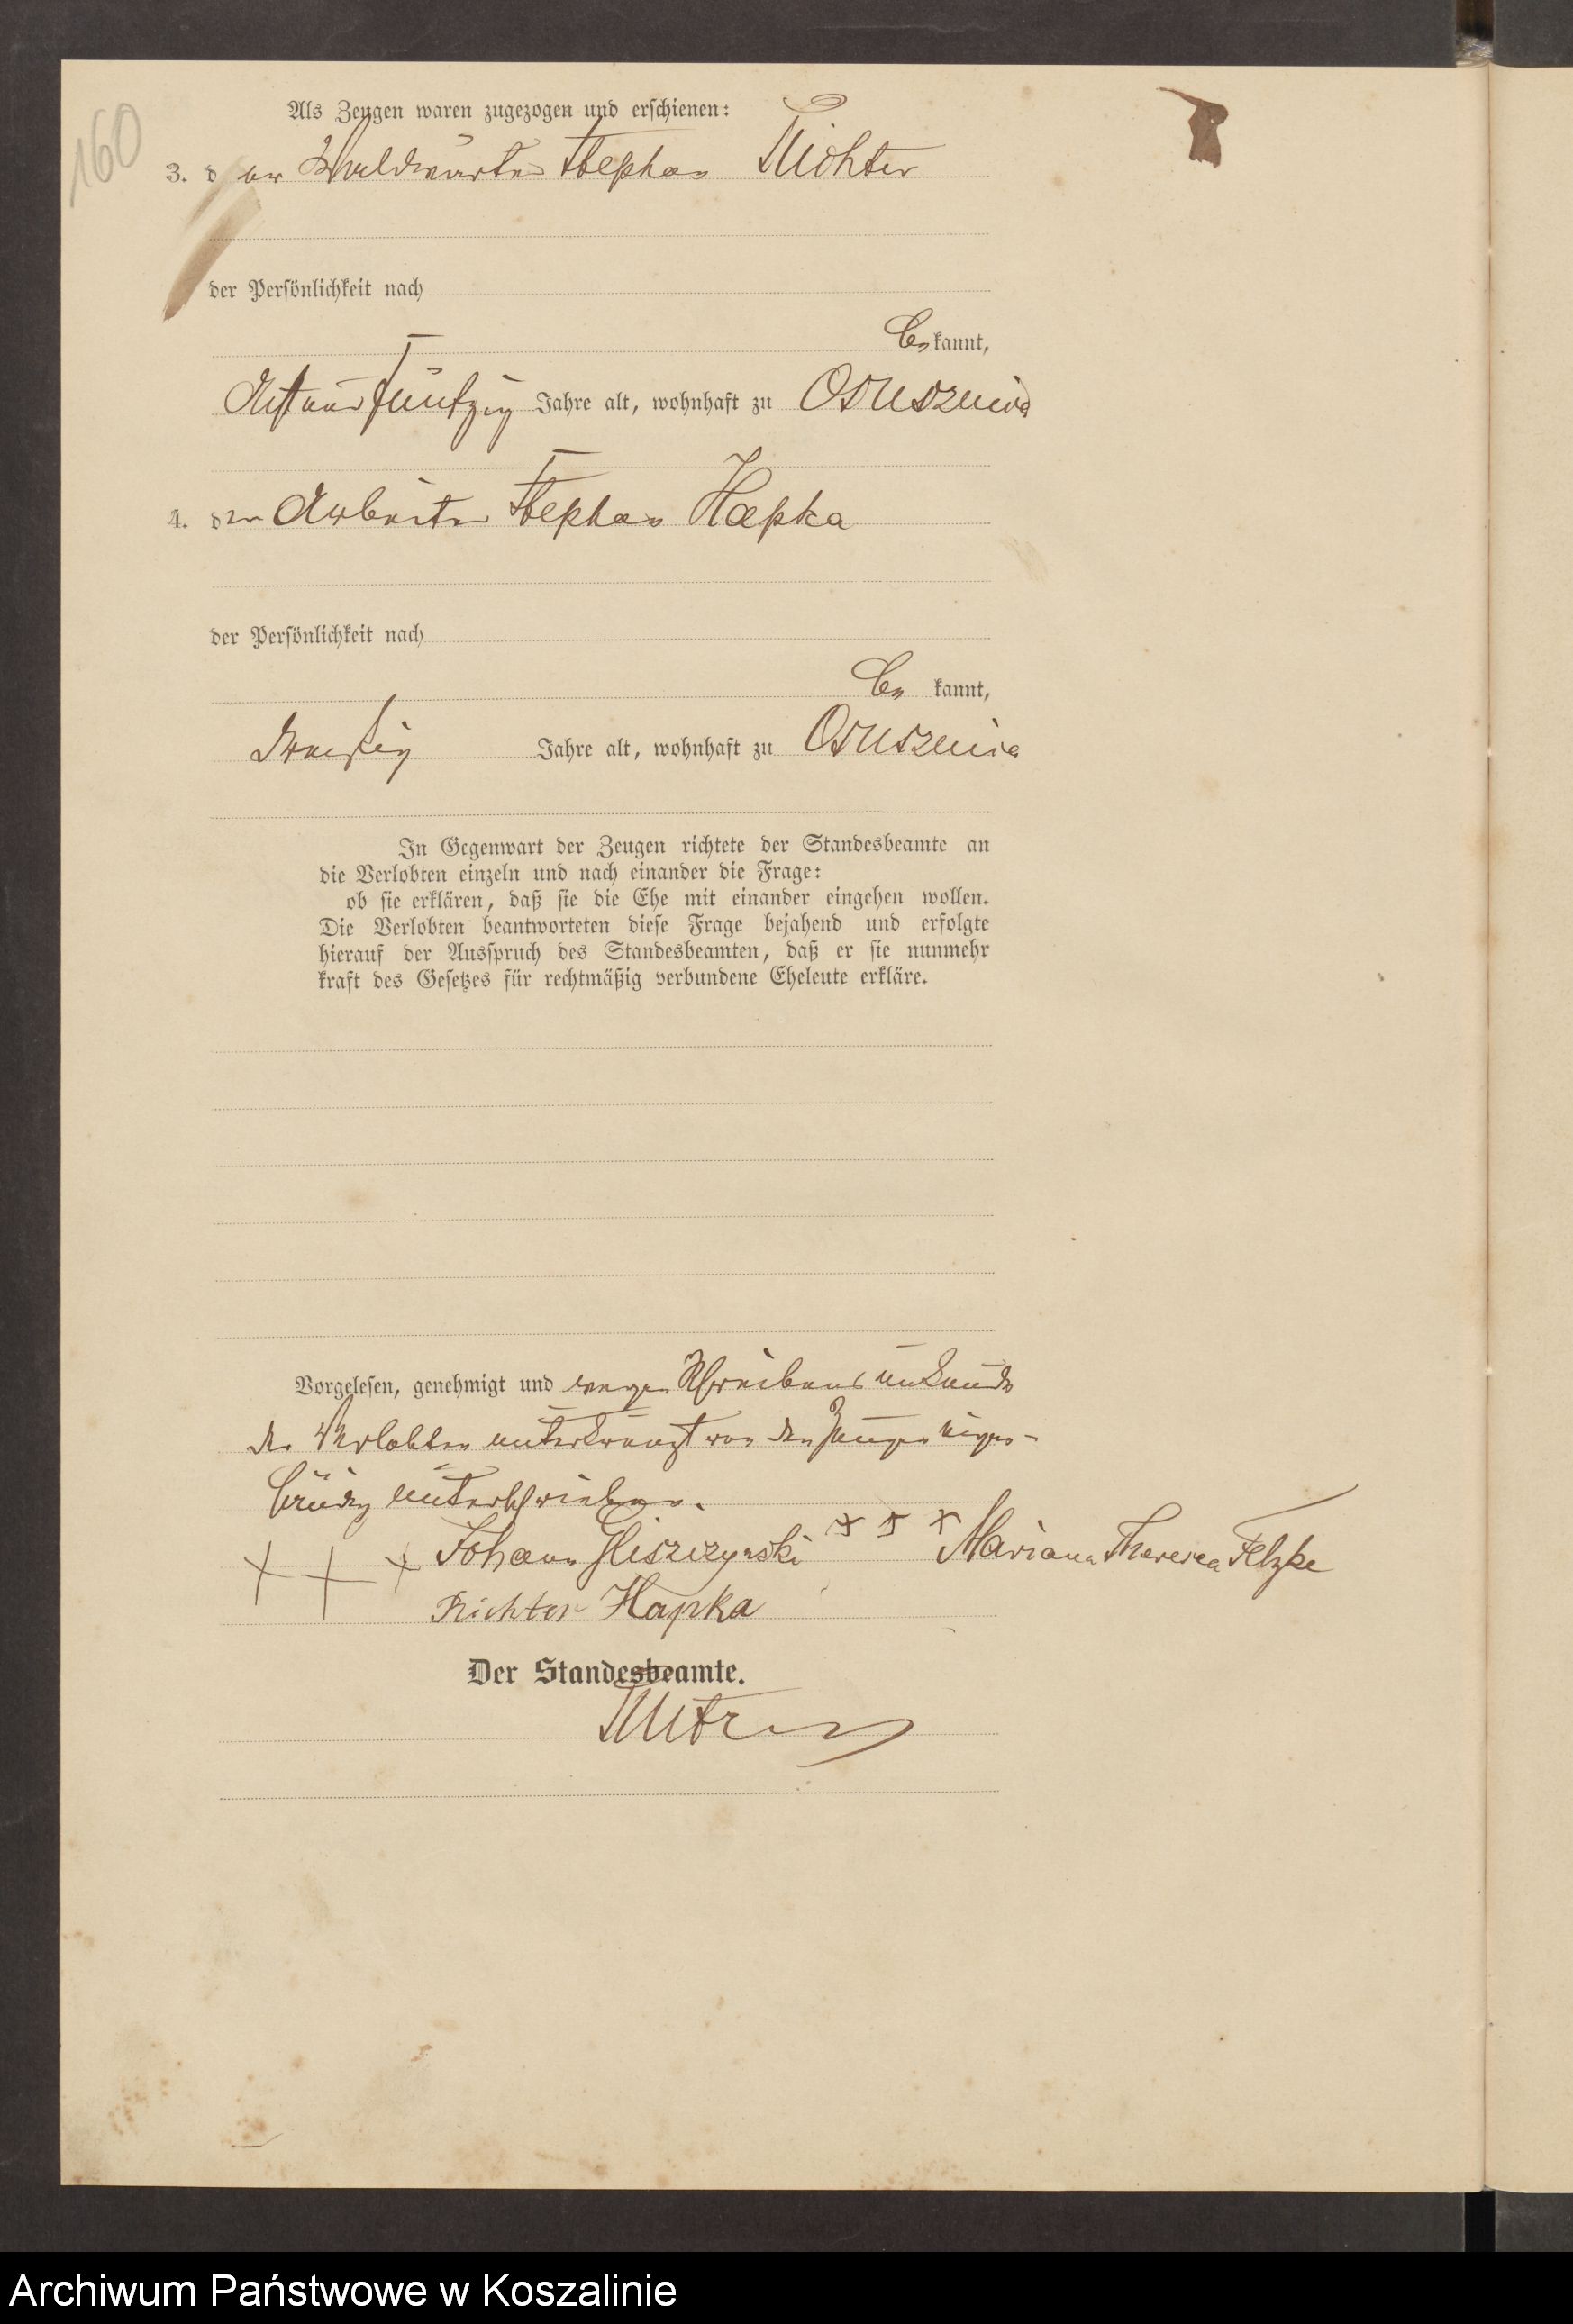 160
Als Zeugen waren zugezogen und erschienen:
3. der Waldwärter Stephan Richter
der Persönlichkeit nach
bekannt,
Acht und fünfzig Jahre alt, wohnhaft zu Osusznica
4. der Arbeiter Stephan Hapka
der Persönlichkeit nach
bekannt,
dreißig Jahre alt, wohnhaft zu Osusznica
In Gegenwart der Zeugen richtete der Standesbeamte an
die Verlobten einzeln und nach einander die Frage:
ob sie erklären, daß sie die Ehe mit einander eingehen wollen.
Die Verlobten beantworteten diese Frage bejahend und erfolgte
hierauf der Ausspruch des Standesbeamten, daß er sie nunmehr
kraft des Gesetzes für rechtmäßig verbundene Eheleute erkläre.
Vorgelesen, genehmigt und wegen Schreibensunkunde
der Verlobten unterkreuzt von den Zeugen eigen-
händig unterschrieben.
+ + + Johann Gliszczynski + + + Marianna Theresea Felzke
Richter Hapka
Der Standesbeamte.